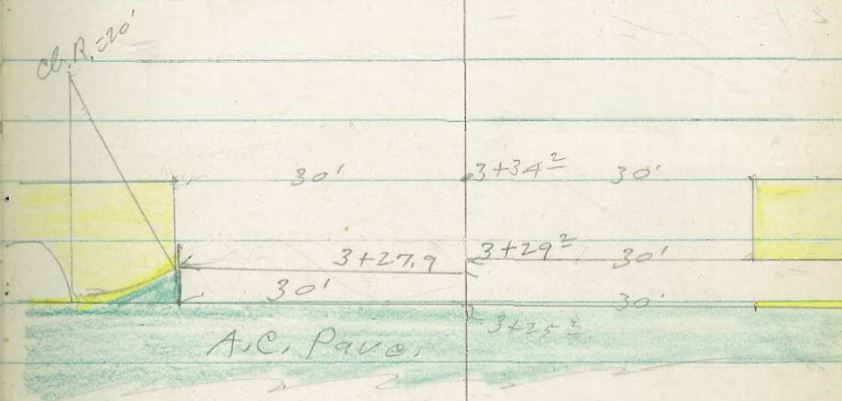 cb. R. = 20'
30' 3+34² 30'
3+27.9 3+29² 30'
30' 30'
3+25²
A.C. Pave.